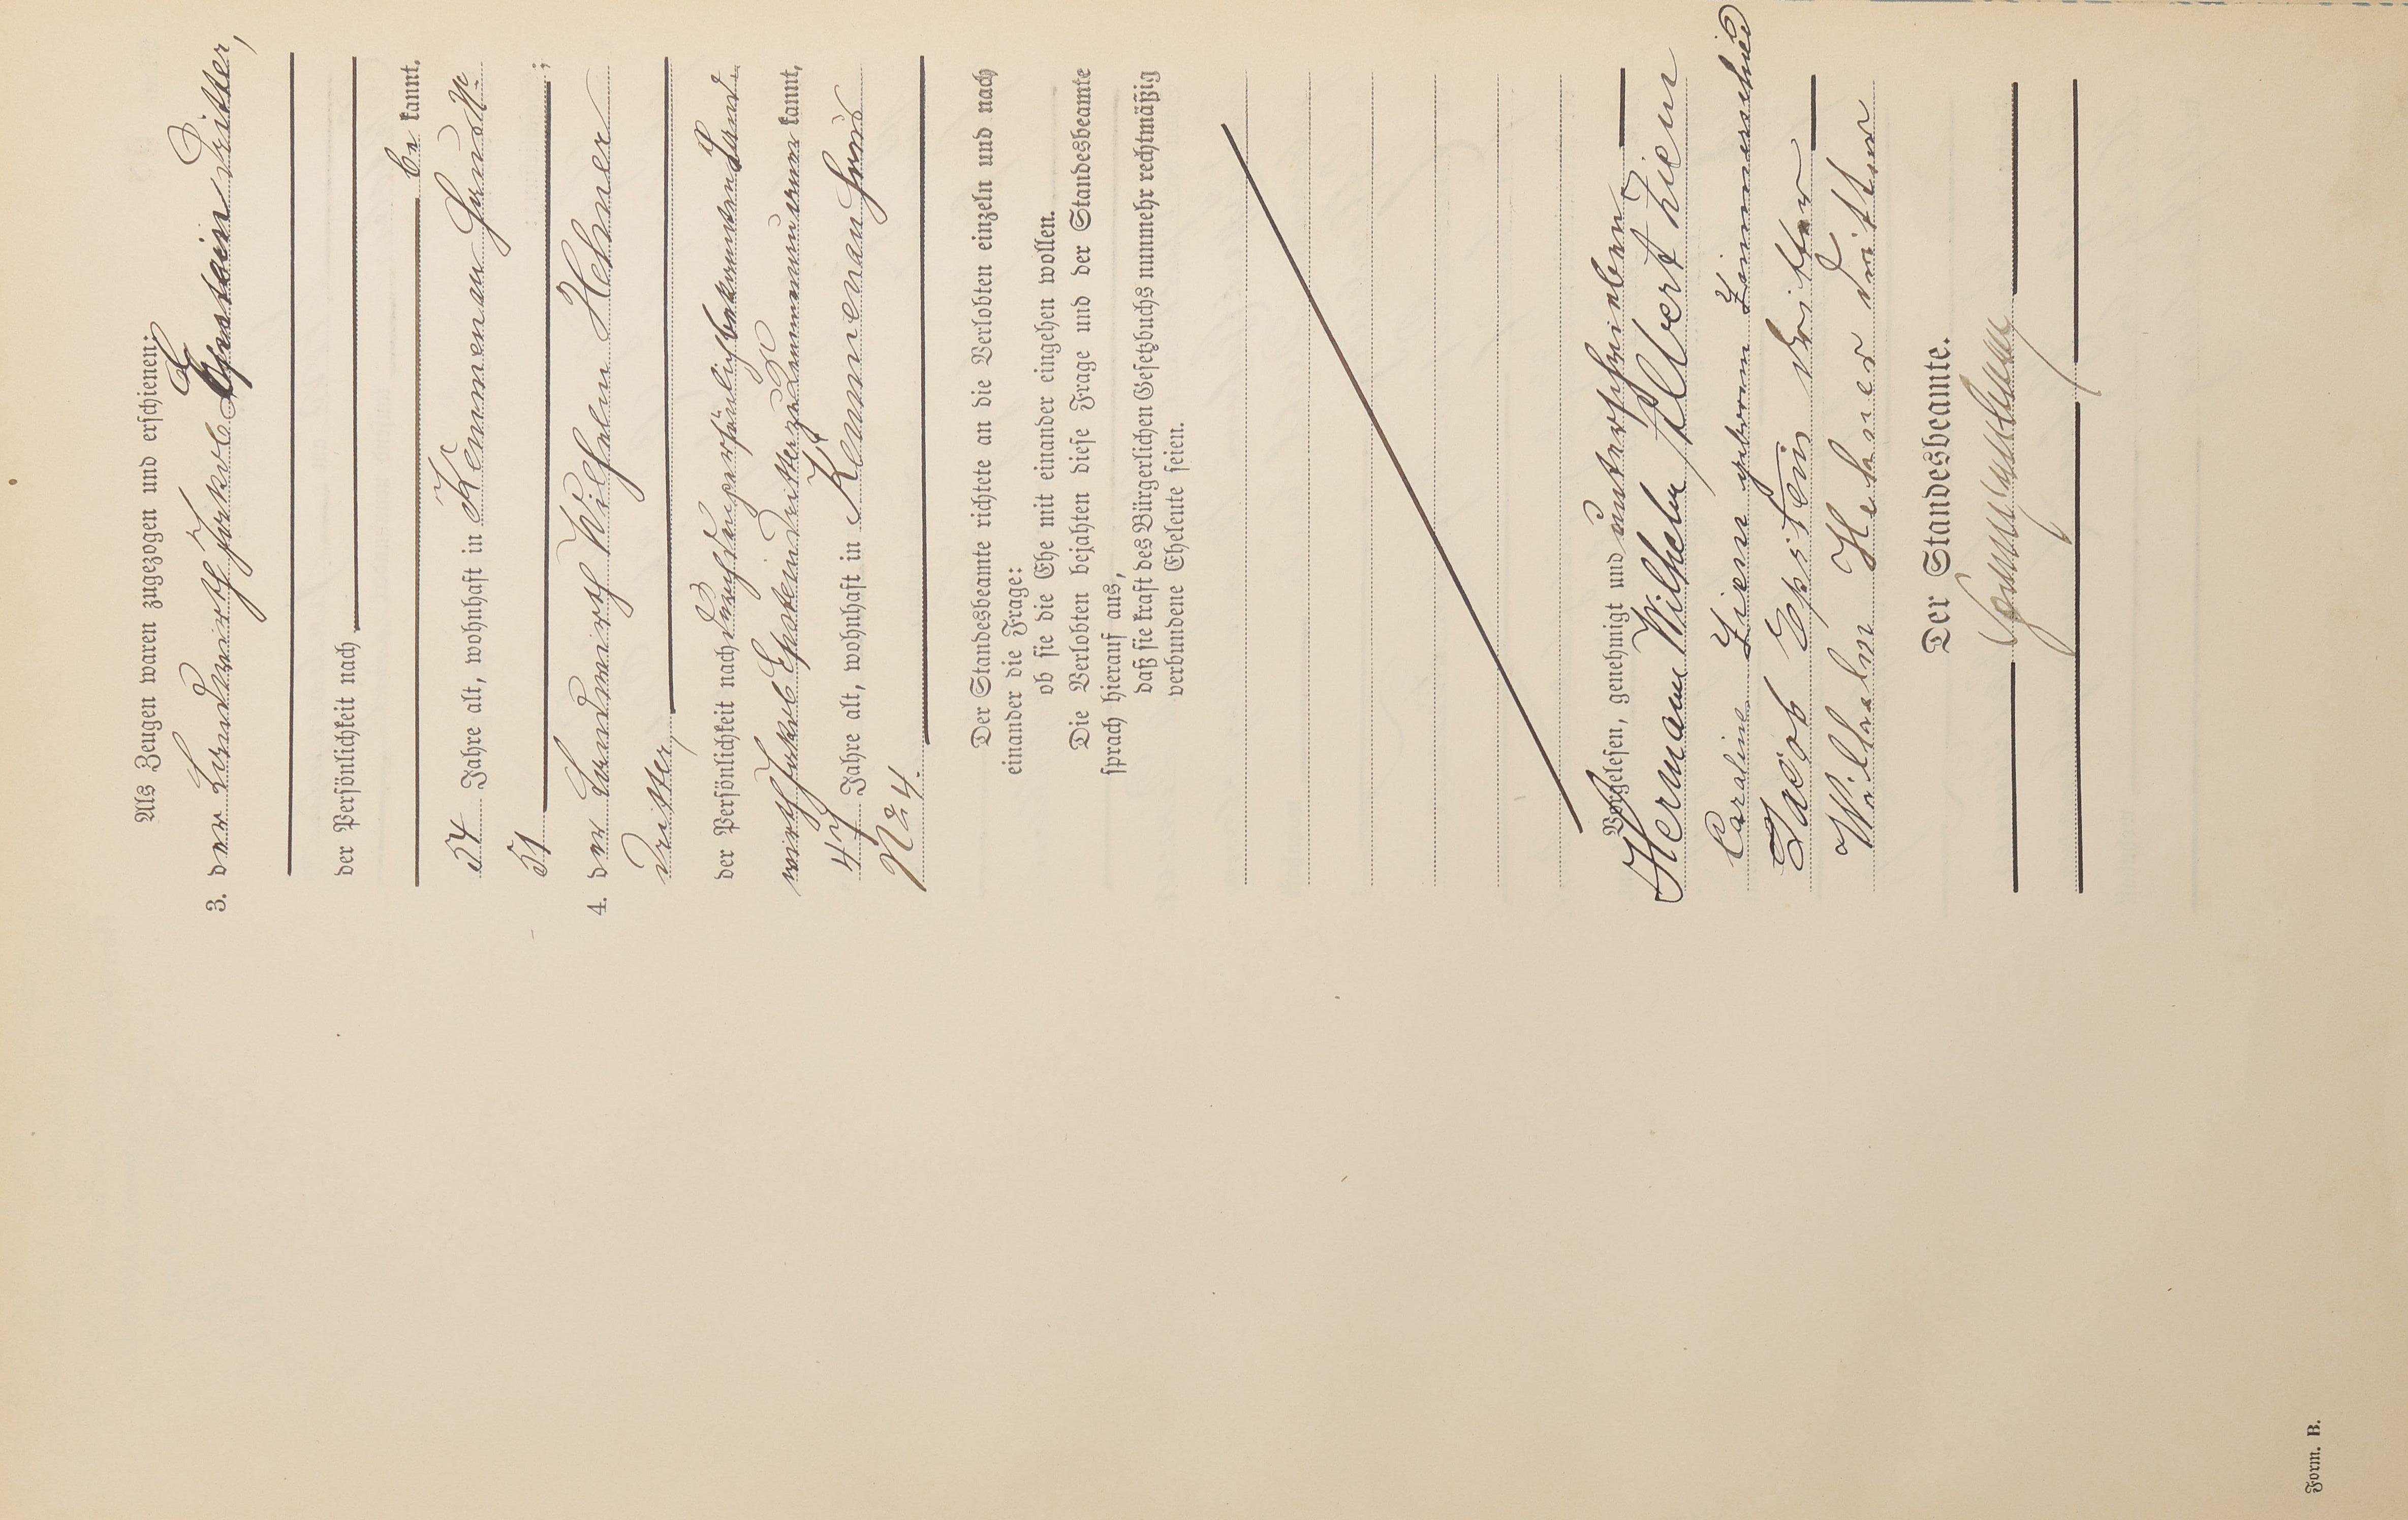 Als Zeugen waren zugezogen und erschienen:
3. der Landwirth Jakob Epstein Dritter,
der Persönlichkeit nach
be kannt,
54 Jahre alt, wohnhaft in Kemmenau Haus N<sup>o</sup>
51 ;
4. der Landwirth Wilhelm Hehner
Dritter,
der Persönlichkeit nach durch den persönlich bekannten Land-
wirth Jakob Epstein Dritter zu Kemmenau aner kannt,
47 Jahre alt, wohnhaft in Kemmenau Haus
N<sup>o</sup> 4.
Der Standesbeamte richtete an die Verlobten einzeln und nach
einander die Frage:
ob sie die Ehe mit einander eingehen wollen.
Die Verlobten bejahten diese Frage und der Standesbeamte
sprach hierauf aus,
daß sie kraft des Bürgerlichen Gesetzbuchs nunmehr rechtmäßig
verbundene Eheleute seien.
Vorgelesen, genehmigt und unterschrieben
Hermann Wilhelm Albert Zien
Caraline Zien geboren Zimmerschied
Jacob Epstein Dritter
Wilhelm Hehner Dritter
Der Standesbeamte.
Form. B.